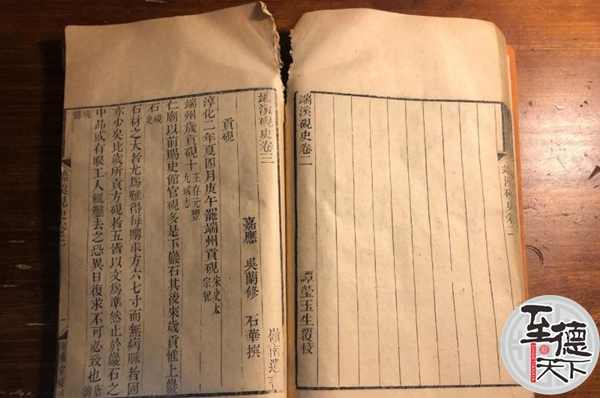 端溪硯史卷二
譚瑩玉生覆校
端溪硯史卷三
嶺南遺
嘉應 吳蘭修 石華撰
貢硯
淳化二年夏四月庚午罷端州貢硯 宋史太宗紀
端州歲貢硯十 王存元豐九域志
仁廟以前賜史館官硯多是下巖石其後來歲貢惟上巖
石 硯史
石材之大者尤為難得每購求方六七寸而無病脈者
亦少矣比歲所貢方硯者五皆以文為準然止於巖石之
中品或有眼工人輒鑿去之恐異日復求不可必致也
至德天下